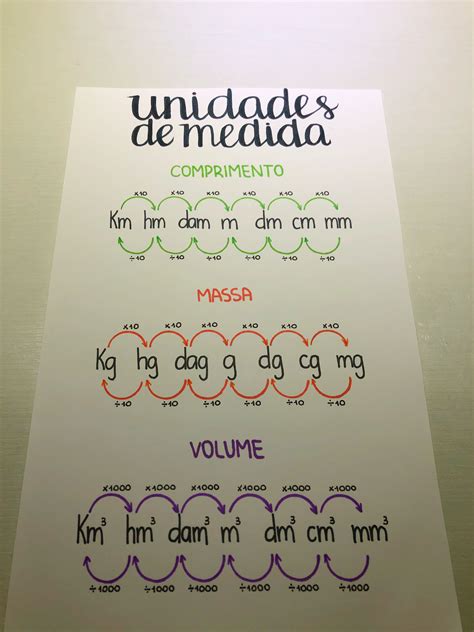 unidades
de medida
COMPRIMENTO
x10 x10 x10 x10 x10 x10
Km hm dam m dm cm mm
÷10 ÷10 ÷10 ÷10 ÷10 ÷10
MASSA
x10 x10 x10 x10 x10 x10
Kg hg dag g dg cg mg
÷10 ÷10 ÷10 ÷10 ÷10 ÷10
VOLUME
x1000 x1000 x1000 x1000 x1000 x1000
Km³ hm³ dam³ m³ dm³ cm³ mm³
÷1000 ÷1000 ÷1000 ÷1000 ÷1000 ÷1000